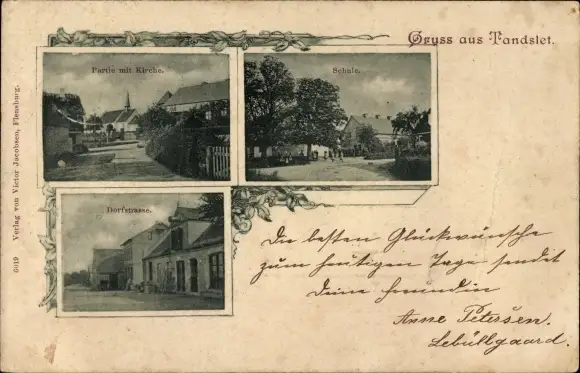 Gruss aus Tandslet.
Partie mit Kirche.
Schule.
Dorfstrasse.
6019 Verlag von Victor Jacobsen, Flensburg.
Die besten Glückwünsche
zum heutigen Tage sendet
Deine Freundin
Anne Petersen.
Lebøllgaard.